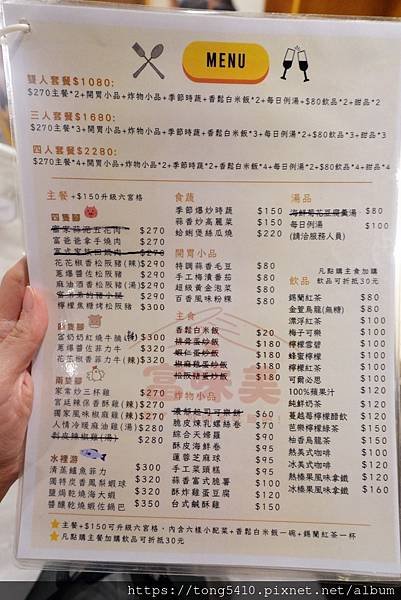 MENU
雙人套餐$1080:
$270主餐*2+開胃小品+炸物小品+季節時蔬+香鬆白米飯*2+每日例湯*2+$80飲品*2+甜品*2
三人套餐$1680:
$270主餐*3+開胃小品+炸物小品*3+季節時蔬+香鬆白米飯*3+每日例湯*3+$80飲品*3+甜品*3
四人套餐$2280:
$270主餐*4+開胃小品*2+炸物小品*2+季節時蔬*2+香鬆白米飯*4+每日例湯*4+$80飲品*4+甜品*4
主餐 +$150升級六宮格
四隻腳
富家蒜泥五花肉 $270
富爸爸拿手燒肉 $270
$270
花花香香松阪豬(辣) $290
蔥爆醬佐松阪豬 $290
麻油酒香松阪豬(湯) $290
$290
檸檬焦糖烤松阪豬 $290
四隻腳
富奶奶紅燒牛腩 $300
蔥爆醬佐菲力牛 $320
花花椒香菲力牛(辣) $320
兩隻腳
家常炒三杯雞 $270
宮廷辣保香酥雞(辣) $270
獨家風味椒麻雞(辣) $270
人情冷暖麻油雞(湯) $280
剝皮辣椒雞(湯) $280
水裡游
清蒸鱸魚菲力 $300
獨特炭香鳳梨蝦球 $320
鹽焗乾燒海大蝦 $320
醬釀乾燒蝦佐鍋巴 $350
食蔬
季節爆炒時蔬 $150
蒜香炒高麗菜 $150
蛤蜊煲絲瓜燒 $220
開胃小品
特調蒜香毛豆 $80
手工梅漬番茄 $80
超級黃金泡菜 $80
百香風味粉粿 $80
主食
香鬆白米飯 $20
排骨蛋炒飯 $180
蝦仁蛋炒飯 $180
椒麻雞蛋炒飯 $180
松阪豬蛋炒飯 $180
炸物小品
濃郁起司可樂餅 $60
脆皮煉乳螺絲卷 $70
綜合天婦羅 $90
酥皮海鮮卷 $90
蓮蓉芝麻球 $95
手工菜頭糕 $95
蒜香富式脆薯 $100
酥炸雞蛋豆腐 $120
台式鹹酥雞 $150
湯品
海鮮菊花豆腐羹湯 $80
每日例湯 $100
(請洽服務人員)
飲品
凡點購主食加購
飲品可折抵30元
錫蘭紅茶 $80
金萱烏龍(無糖) $80
漂浮紅茶 $100
梅子可樂 $100
檸檬雪碧 $100
蜂蜜檸檬 $100
檸檬紅茶 $100
可爾必思 $100
100%蘋果汁 $120
純鮮奶茶 $120
蔓越莓檸檬醋飲 $120
芭樂檸檬綠茶 $150
柚香烏龍茶 $150
熱美式咖啡 $100
冰美式咖啡 $120
熱榛果風味拿鐵 $120
冰榛果風味拿鐵 $160
★主餐+$150可升級六宮格，內含六樣小配菜+香鬆白米飯一碗+錫蘭紅茶一杯
★凡點購主餐加購飲品可折抵30元
https://tong5410.pixnet.net/album